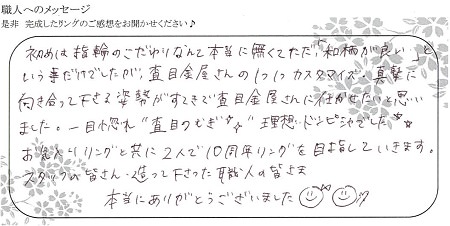 職人へのメッセージ
是非 完成したリングのご感想をお聞かせください♪
初めは指輪のこだわりなんて本当に無くてただ、「和柄が良い」と
いう事だけでしたが、杢目金屋さんの1つ1つカスタマイズ、真摯に
向き合って下さる姿勢がすてきで杢目金屋さんに任せたいと思い
ました。一目惚れ"杢目つむぎ☆"理想ドンピシャでした☆
お気に入りリングと共に2人で10周年リングを目指していきます。
スタッフの皆さん・造って下さった職人の皆さま
本当にありがとうございました